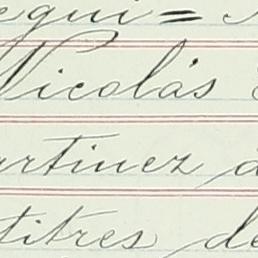 egui=
Nicolás
artinez d
titres de